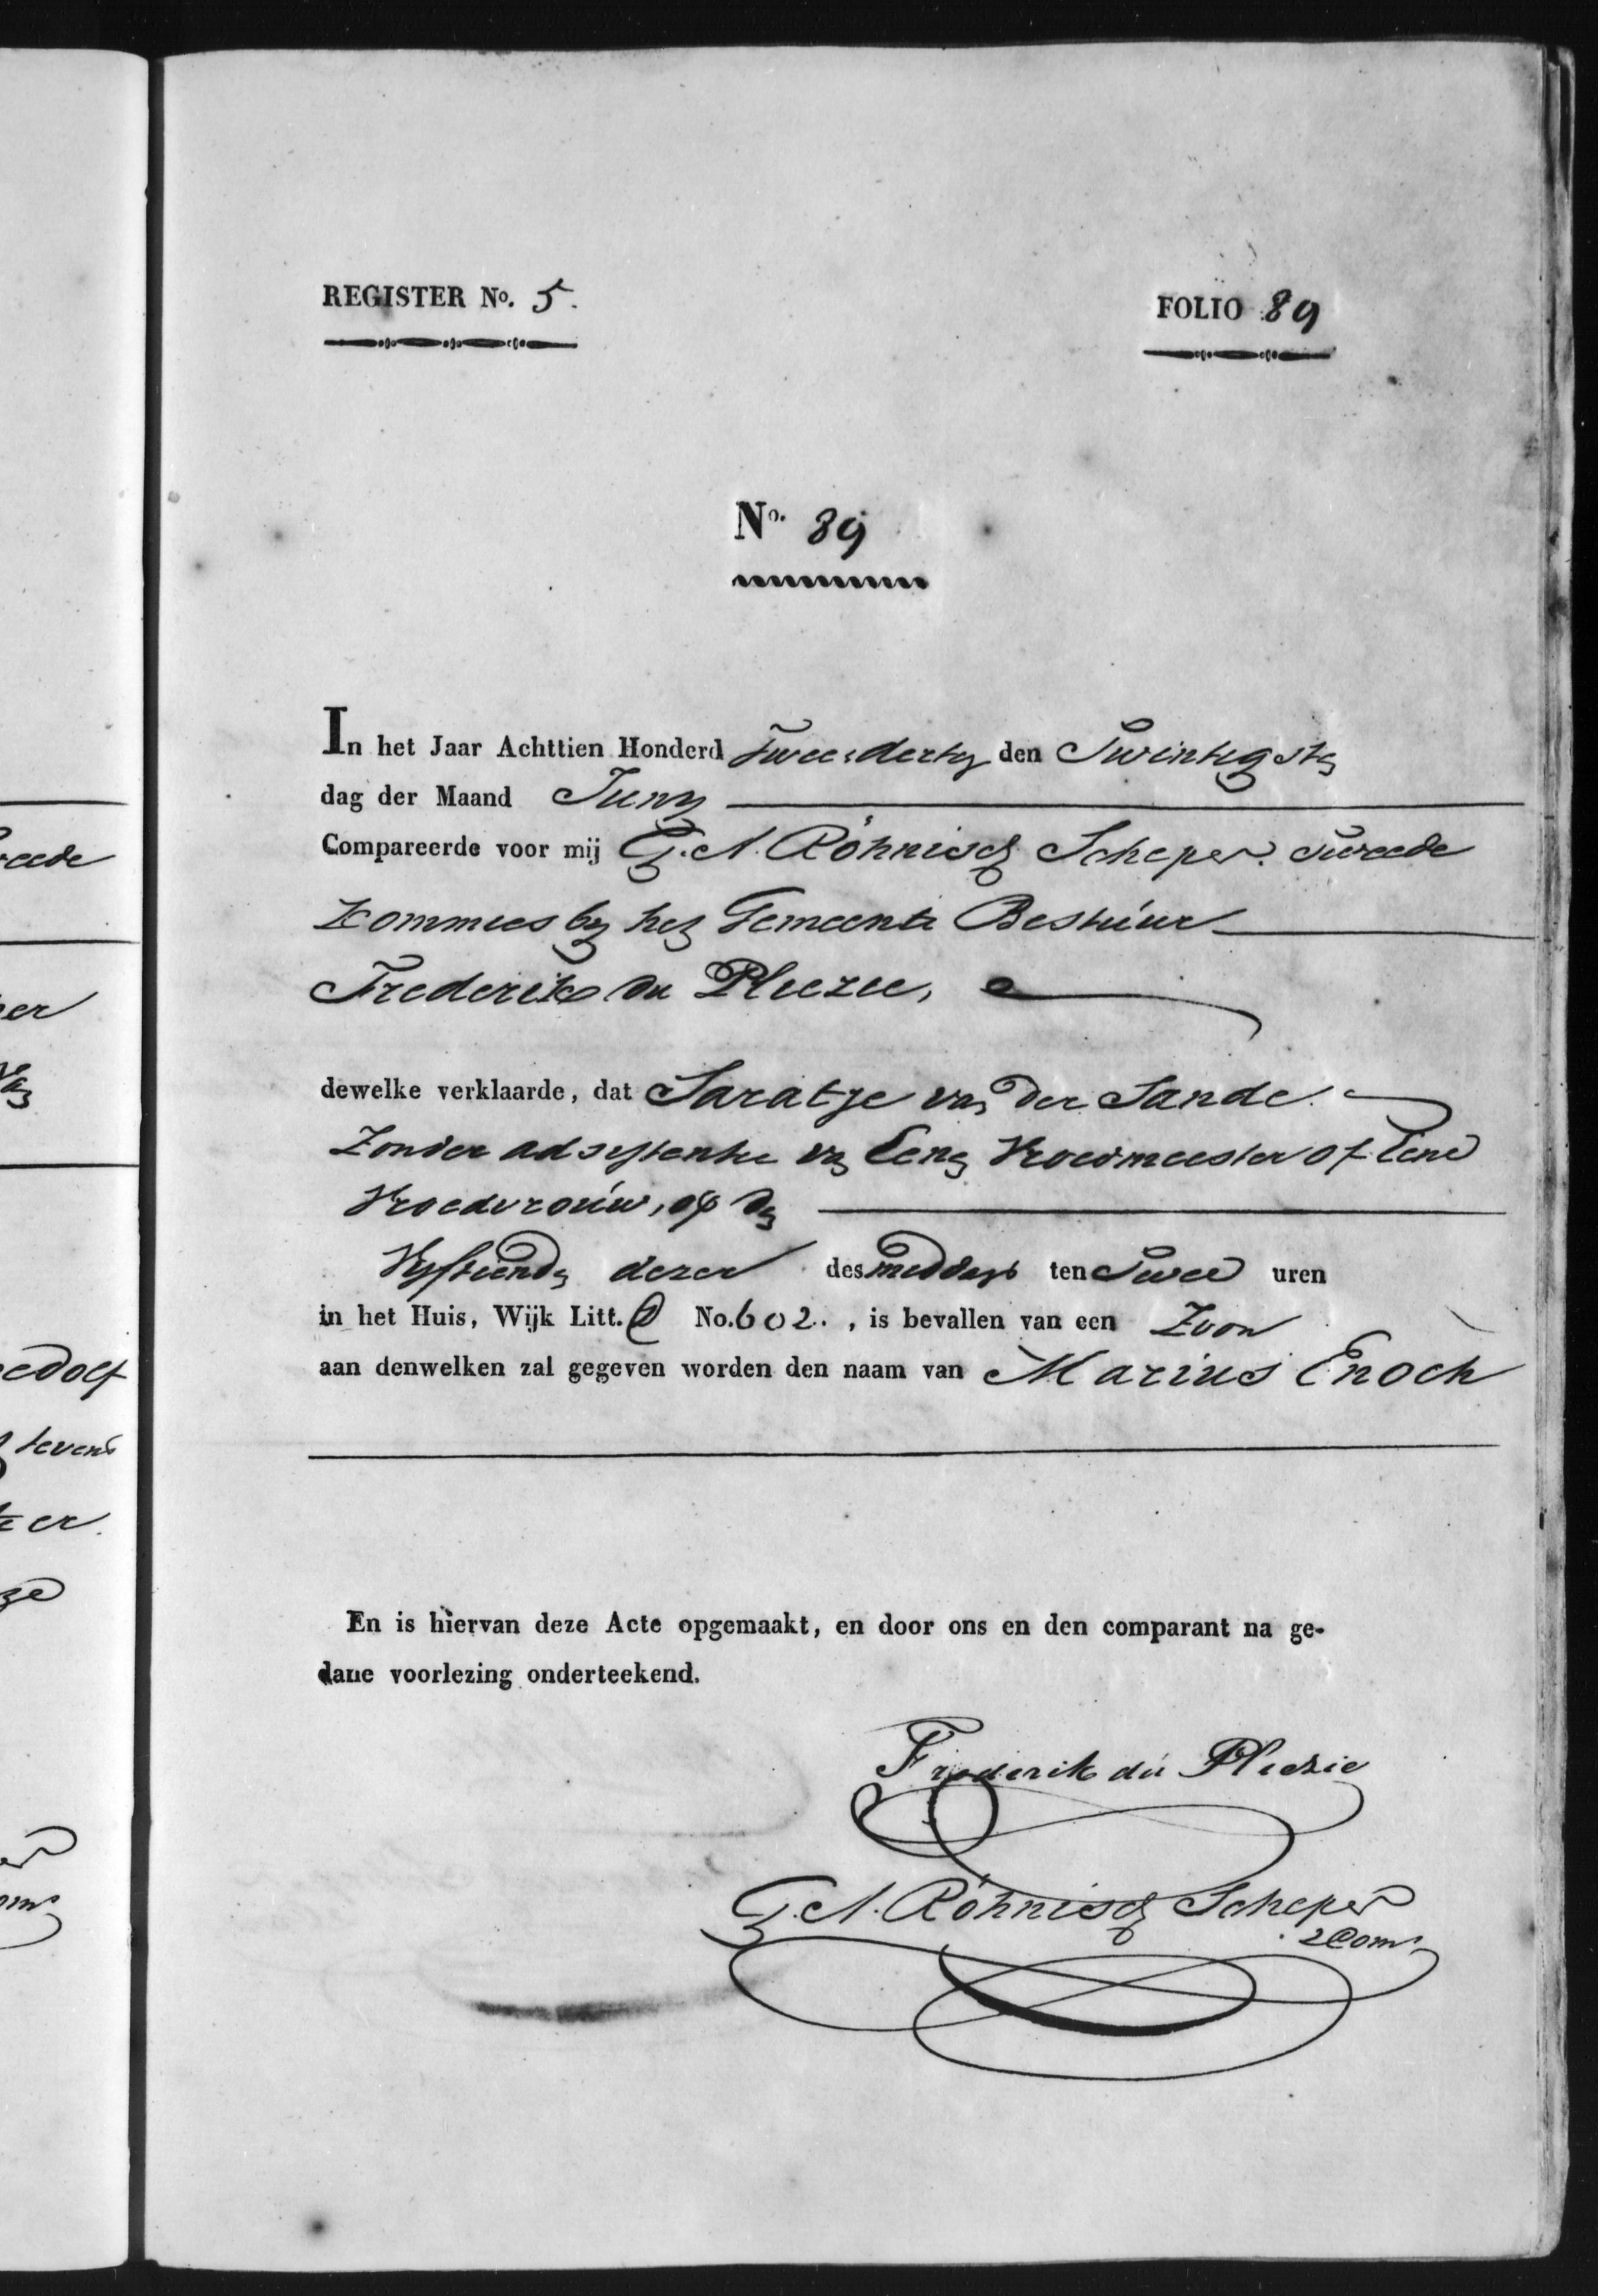 REGISTER No. 5.
FOLIO 89
No. 89
In het Jaar Achttien Honderd Twee & dertig den Twintigste
dag der Maand Juny
Compareerde voor mij G. A. Röhnisch Scheper. Tweede
Kommies by het Gemeente Bestuur
Frederik du Pliezie,
dewelke verklaarde, dat Saratje van der Sande
Zonder adsistentie van Eene Vroedmeester of Eene
Vroedvrouw, op de
Vyftiende dezer des middags ten Twee uren
in het Huis, Wijk Litt. No. 602. , is bevallen van een Zoon
aan denwelken zal gegeven worden den naam van Marius Enoch
En is hiervan deze Acte opgemaakt, en door ons en den comparant na ge-
dane voorlezing onderteekend.
Frederik du Pliezie
G. A. Röhnisch Scheper
2 Coms
eede
er
edolf
tevens
er.
ze